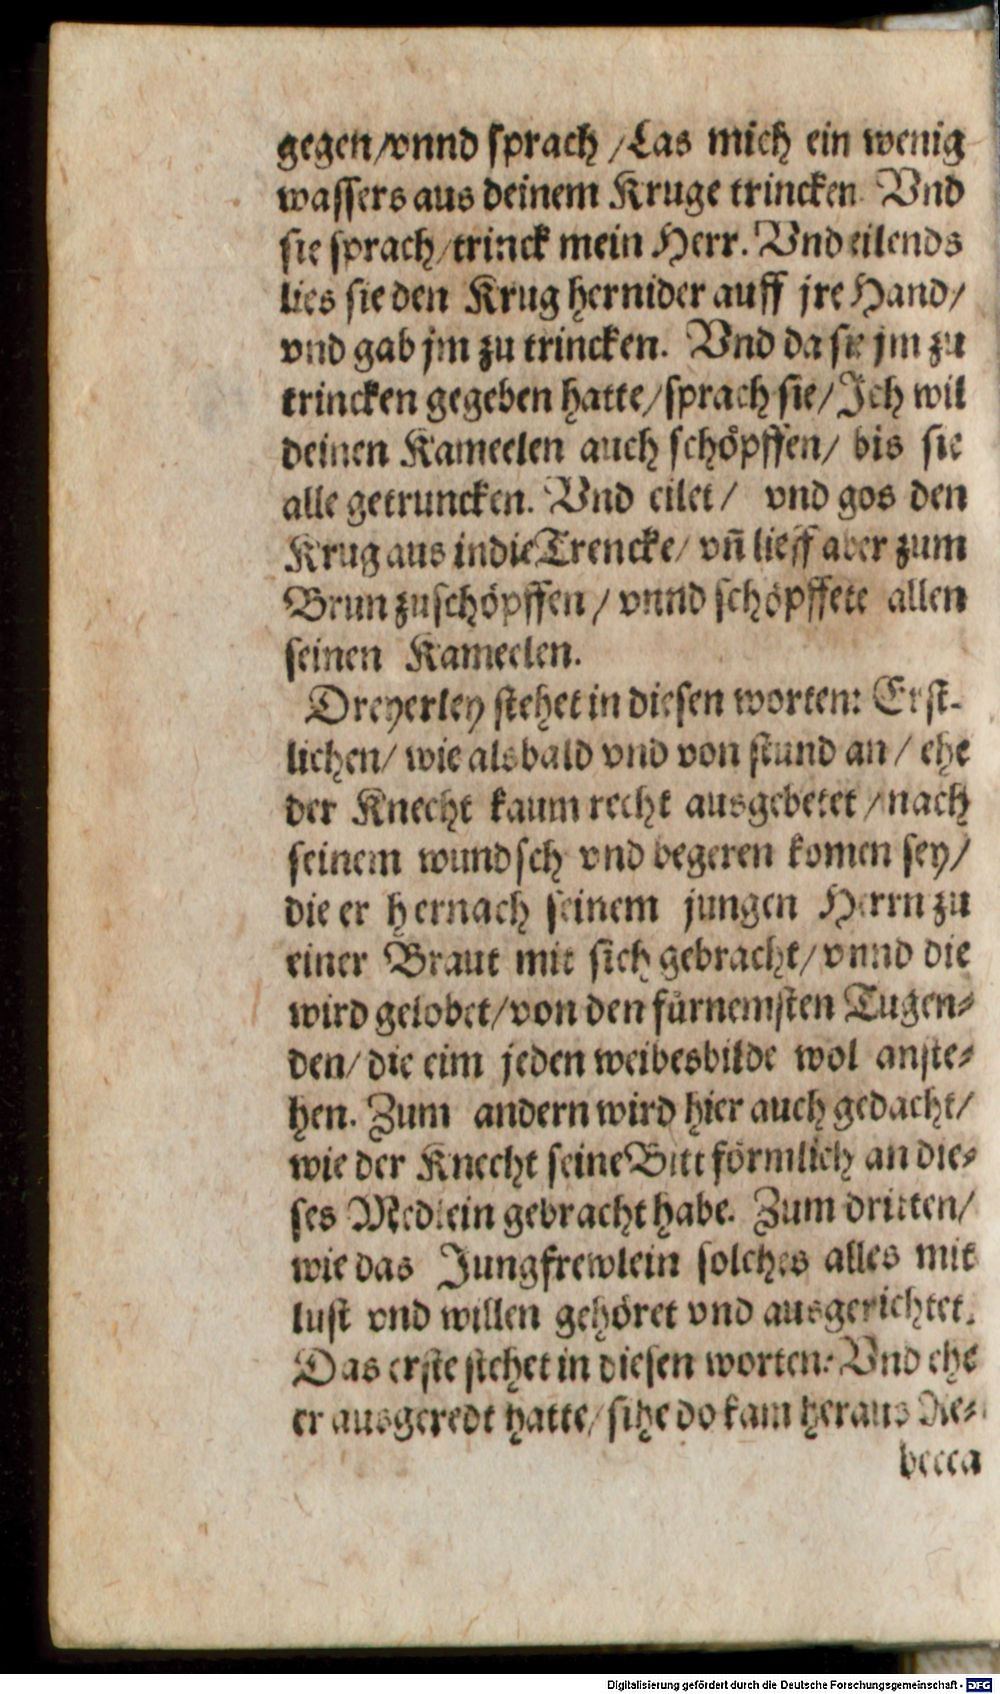 gegen/vnnd sprach /Las mich ein wenig
wassers aus deinem Kruge trincken. Vnd
sie sprach/trinck mein Herr. Vnd eilends
lies sie den Krug hernider auff jre Hand/
vnd gab jm zu trincken. Vnd da sie jm zu
trincken gegeben hatte/sprach sie/Ich wil
deinen Kameelen auch schöpffen/ bis sie
alle getruncken. Vnd eilet/ vnd gos den
Krug aus in die Trencke/ vñ lieff aber zum
Brun zu schöpffen / vnnd schöpffete allen
seinen Kameelen.
Dreyerley stehet in diesen worten: Erst-
lichen/ wie alsbald vnd von stund an / ehe
der Knecht kaum recht ausgebetet /nach
seinem wundsch vnd begeren komen sey/
die er hernach seinem jungen Herrn zu
einer Braut mit sich gebracht/vnnd die
wird gelobet/von den fürnemsten Tugen-
den/die eim jeden weibesbilde wol anste-
hen. Zum andern wird hier auch gedacht/
wie der Knecht seine Bitt förmlich an die-
ses Medlein gebracht habe. Zum dritten/
wie das Jungfrewlein solches alles mit
lust vnd willen gehöret vnd ausgerichtet.
Das erste stehet in diesen worten: Vnd ehe
er ausgeredt hatte/sihe do kam heraus Re-
becca
Digitalisierung gefördert durch die Deutsche Forschungsgemeinschaft - DFG